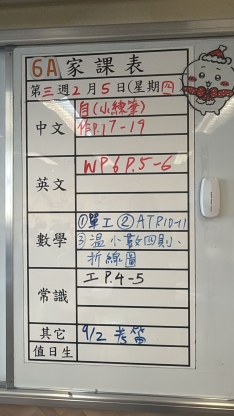 6A 家課表
第三週2月5日(星期四)
中文 自(小練筆)
作P.17-19
英文 WP6 P.5-6
數學 ①單工 ②ATR10-11
③溫小數四則、
折線圖
常識 工P.4-5
其它 9/2 考
值日生